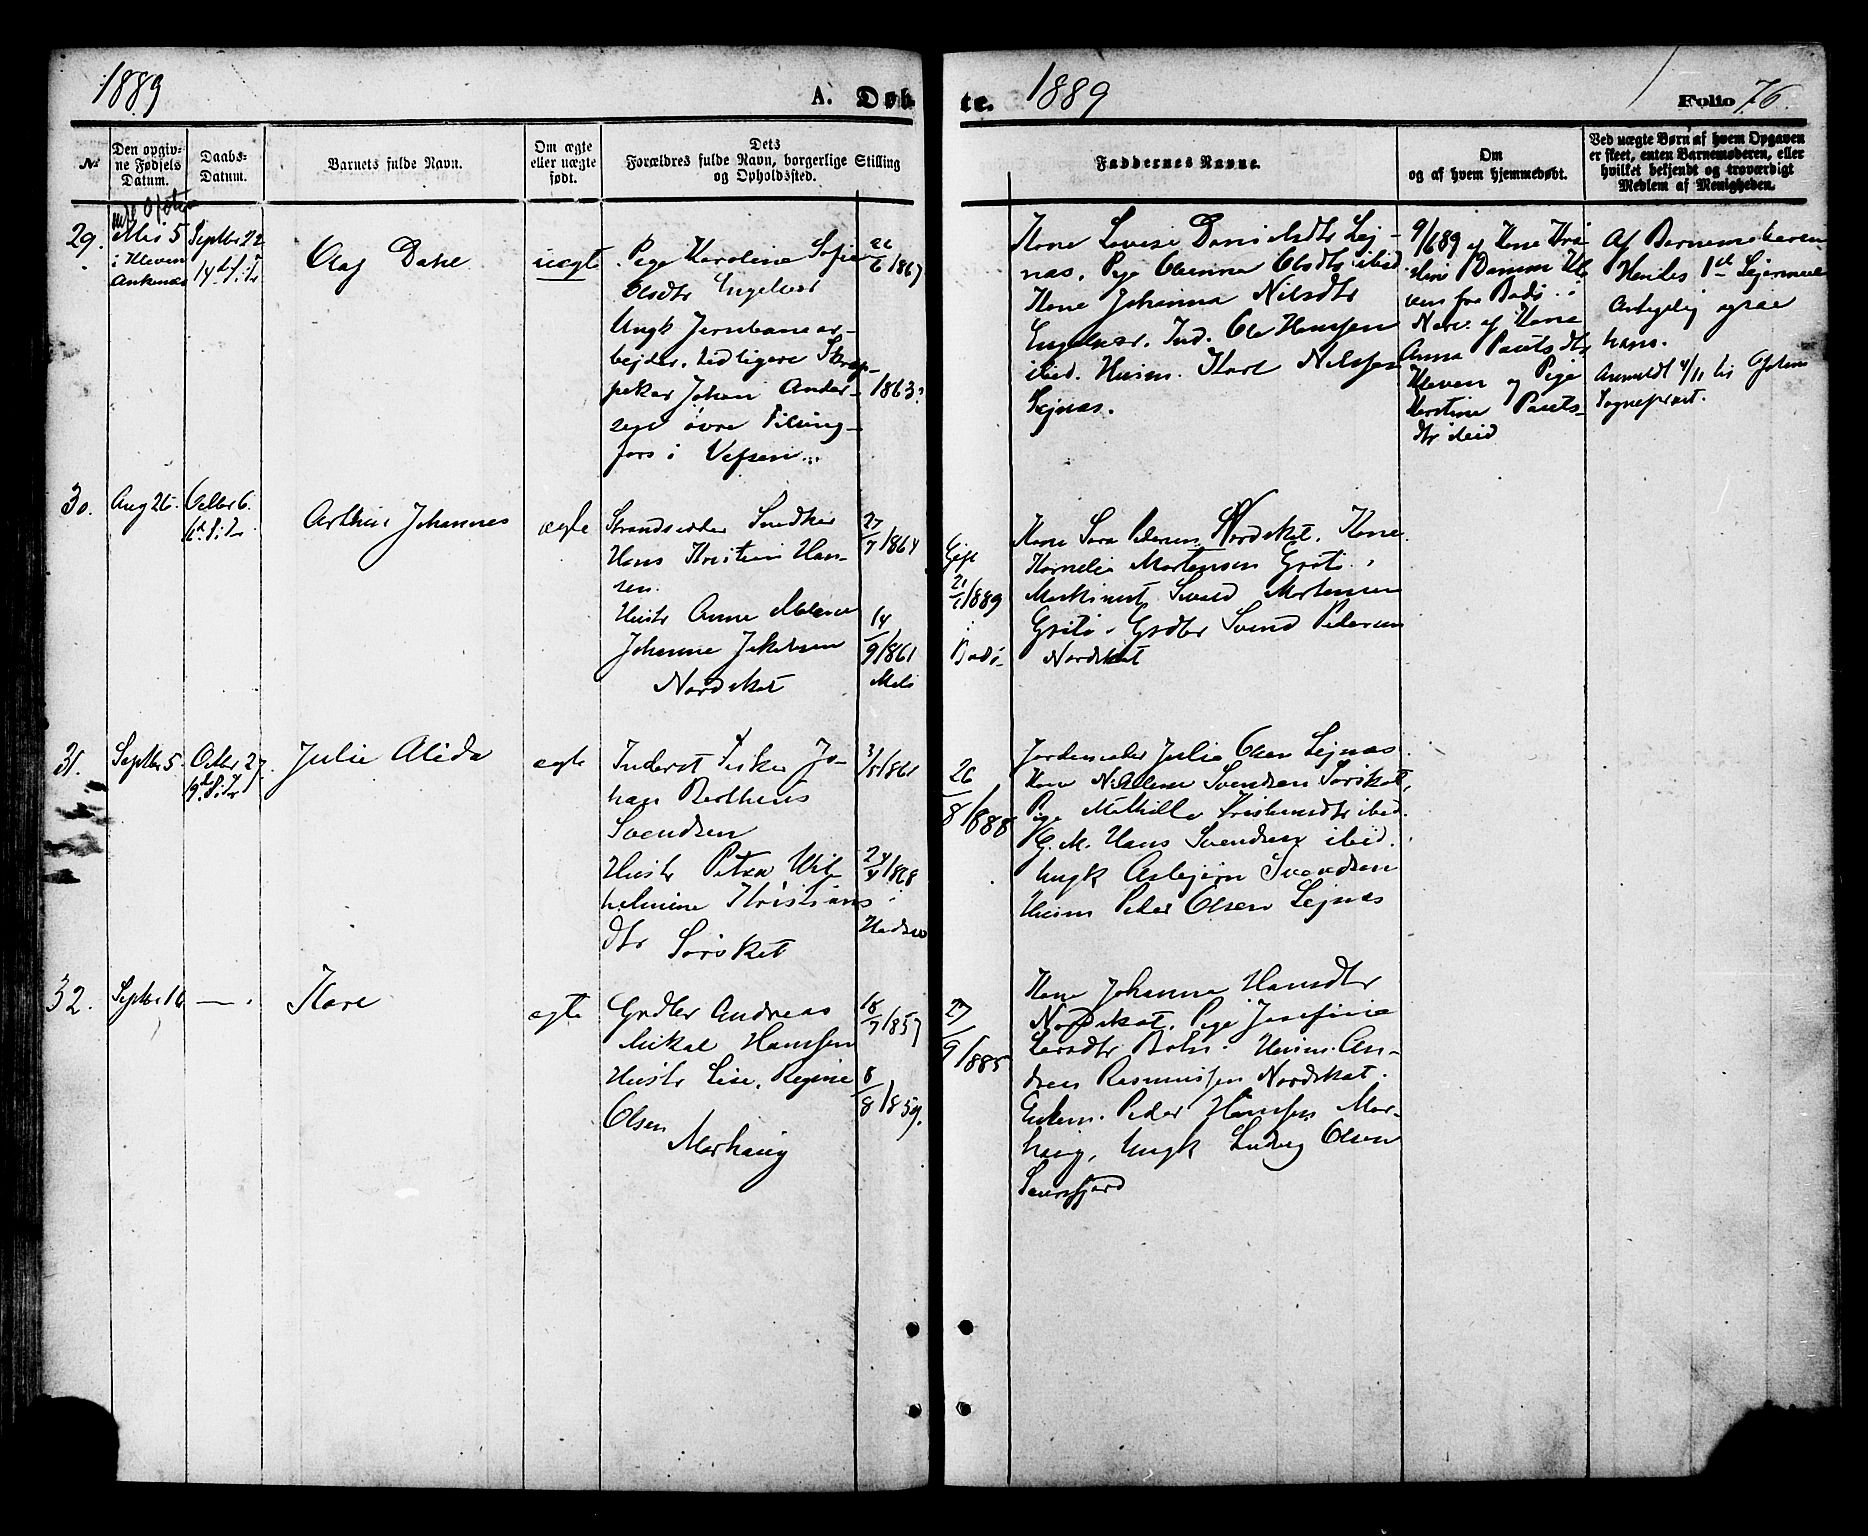 1889
A. Døb
te.
1889
Folio 76.
№
Den opgiv-
ne Fødsels
Datum.
Daabs-
Datum.
Barnets fulde Navn.
Om ægte
eller uægte
født.
Dets
Forældres fulde Navn, borgerlige Stilling
og Opholdssted.
Faddernes Navne.
Om
og af hvem hjemmedøbt.
Ved uægte Børn af hvem Opgaven
er skeet, enten Barnemoderen, eller
hvilket bekjendt og troværdigt
Medlem af Menigheden.
29.
5
i Kleven
Ankenæs
Septbr 22
14d. S. i Tr
Olaf Dahl
uægte
Pige Karoline Sofie
Olsdtr Engelvær
Ungk Jernbanear-
bejder, tidligere
Johan Ander-
sen øvre
fors i Vefsen
22/6 1867
1863?
Kone Lovise Danielsdtr Lej-
nas, Pige Olsdtr ibid
Kone Johanna Nilsdtr
Engelvær. Ind. Ole Hansen
ibid. Husm. Karl Nilssen
Lejnas.
9/6 89 af Kone
Kle
ven fra Bodø
af Kone
Anna Pauls dtr
Kleven og Pige
Kirstine Pauls-
dtr ibid
Af Barnemoderen
Hendes 1st Lejermaal
ogsaa
hans.
Anmeldt 4/11 til Ofoten
Sogneprest.
30.
Aug 26.
Octbr 6.
16d. S. i Tr.
Arthur Johannes
ægte
Strandsidder Snedker
Hans Kristian Han-
sen.
Hustr Anne
Johanne Jakobsen
Nordskot
27/7 1864
14/9 1861
Melø
Gift
21/1 1889
i
Bodø
Kone Sara Pedersen Nordskot. Kone
Kornelia Mortensen Grøtø.
Maskinist Mortensen
Grøtø. Grdbr Svend Pedersen
Nordskot
31.
Septbr 5
Octbr 27.
19d. S. i Tr
Julie Alida
ægte
Inderst Fisker Jo-
han Bertheus
Svendsen
Hustr Petra Wil-
helmine Kristians
dtr Sørskot
3/5 1861
24/4 1868
Hadsel
26/8 1888
Jordemoder Julie Olsen Lejnas.
Kone Svendsen Sørskot,
Pige Mathilde ibid.
G. M. Hans Svendsen ibid.
Ungk Asbjørn Svendsen
Husm Peder Olsen Lejnas
32.
Septbr 16
— .
Kare
ægte
Grdbr Andreas
Mikal Hanssen
Hustr Lise, Regine
Olsen
Morhaug
18/7 1857
8/8 1859.
27/9 1885
Kone Johanna Hansdtr
Nordskot. Pige Josefine
Larsdtr Husm. An-
dreas Rasmussen Nordskot.
Enkem. Peder Hanssen Mor-
haug, Ungk Ludvig Olsen